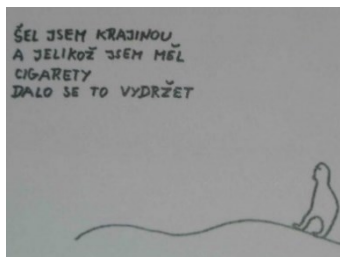 ŠEL JSEM KRAJINOU
A JELIKOŽ JSEM MĚL
CIGARETY
DALO SE TO VYDRŽET